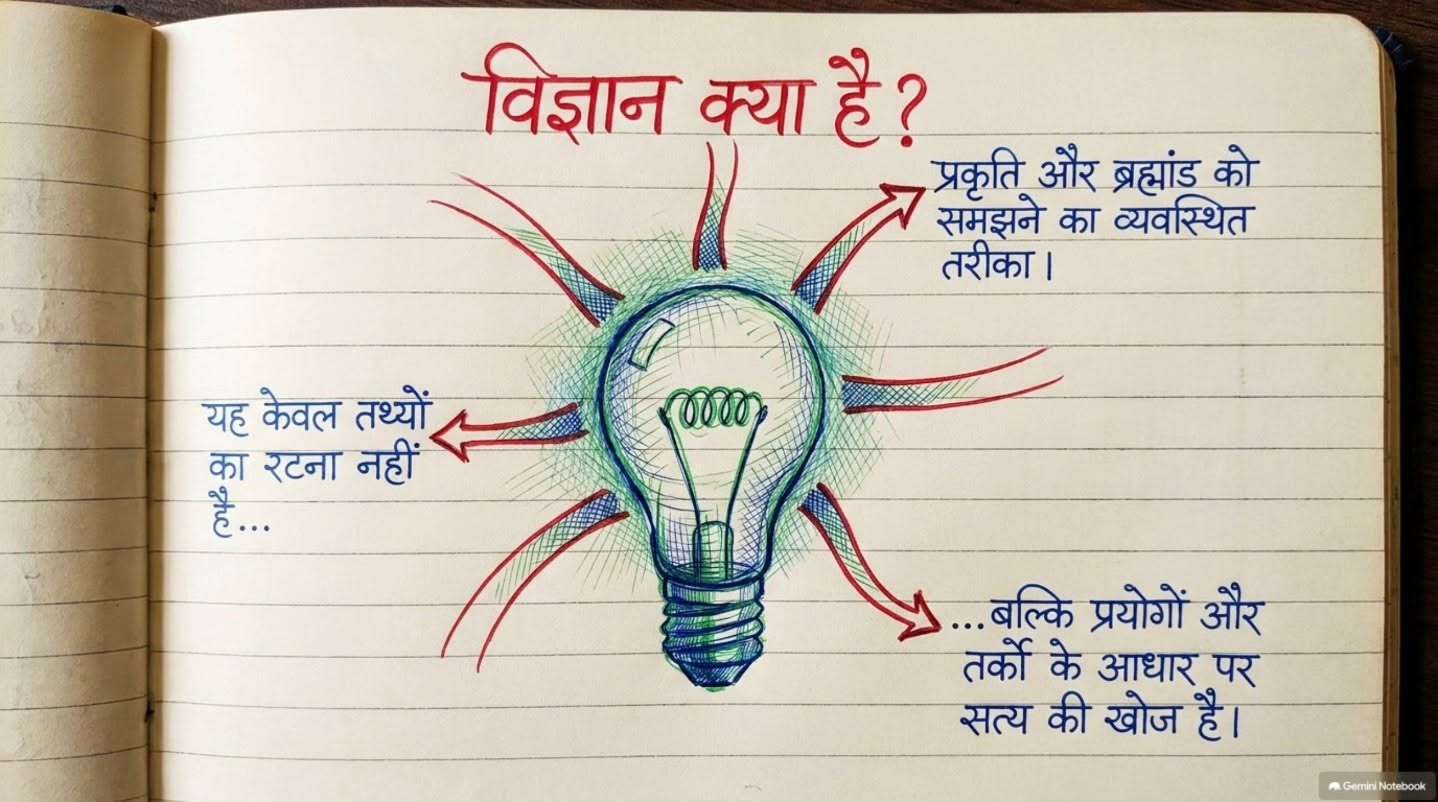 विज्ञान क्या है?
प्रकृति और ब्रह्मांड को
समझने का व्यवस्थित
तरीका।
यह केवल तथ्यों
का रटना नहीं
है...
...बल्कि प्रयोगों और
तर्को के आधार पर
सत्य की खोज है।
Gemini Notebook